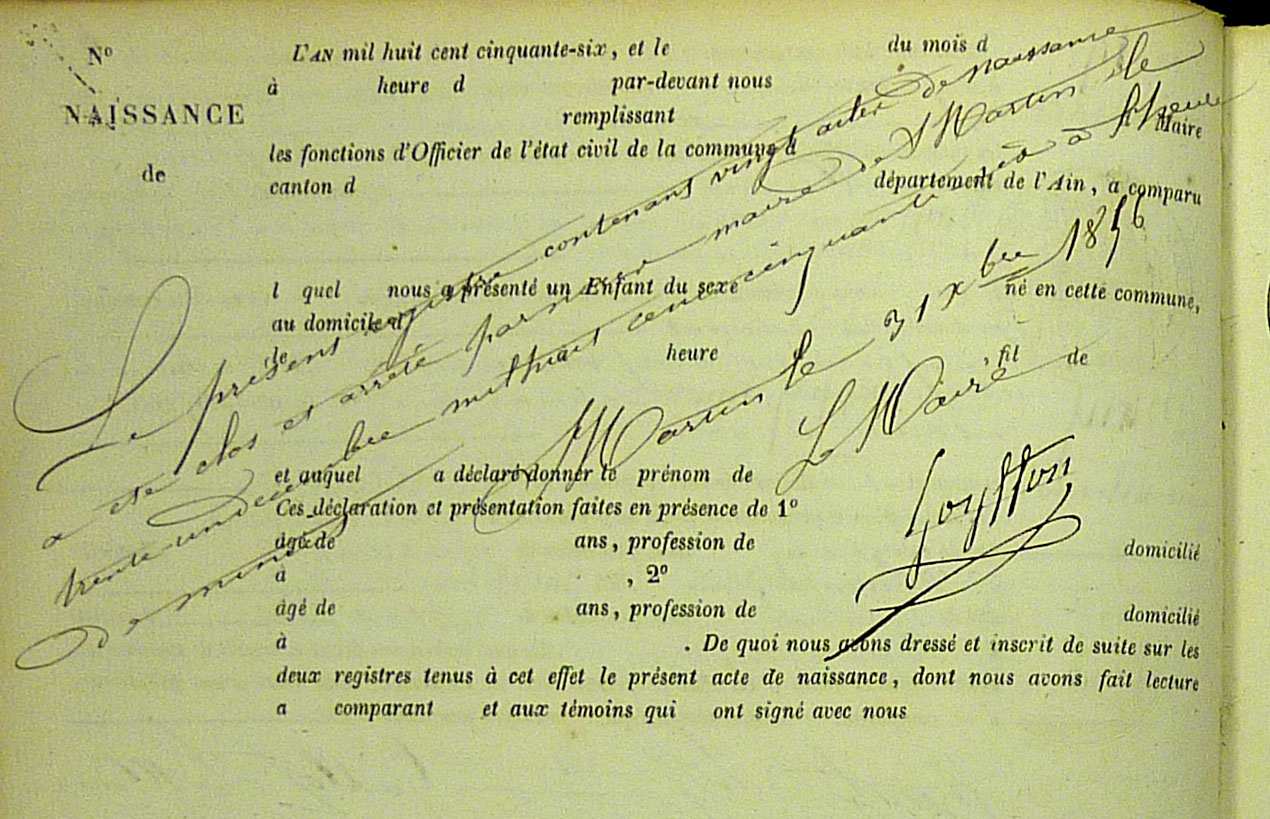 N°
NAISSANCE
de
L'AN mil huit cent cinquante-six, et le du mois d
à heure d par-devant nous
remplissant
les fonctions d'Officier de l'état civil de la commune d Maire
canton d département de l'Ain, a comparu
l quel nous a présenté un Enfant du sexe né en cette commune,
au domicile d
de heure , fil de
et auquel a déclaré donner le prénom de
Ces déclaration et présentation faites en présence de 1°
âgé de ans, profession de domicilié
à , 2°
âgé de ans, profession de domicilié
à . De quoi nous avons dressé et inscrit de suite sur les
deux registres tenus à cet effet le présent acte de naissance, dont nous avons fait lecture
a comparant et aux témoins qui ont signé avec nous
Le présent registre contenant vingt actes de naissance
a été clos et arrêté par nous maire de St Martin le
trente un décembre mil huit cent cinquante six à l'heure
de minuit
St Martin le 31 Xbre 1856
Le Maire